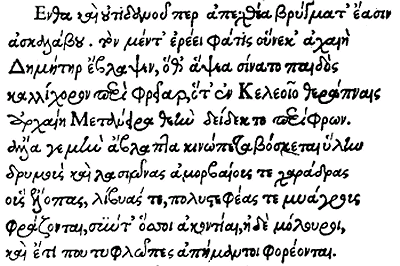 Ενθα καὶ οὐτιδανοῦ περ ἀπεχθέα βρύγματ' ἔασιν
ἀσκαλάβου. τὸν μέντ' ἐρέει φάτις οὕνεκ' ἀχαιὴ
Δημήτηρ ἔβλαψεν, ὅθ' ἅψεα σίνατο παιδὸς
καλλίχορον παρὰ φρέαρ, ὅτ' ἐν Κελεοῖο θεράπναις
ἀρχαίη Μετάνειρα θεὴν δείδεκτο περίφρων.
ἄλλα γε μὴν ἀβλαπῆ κινώπετα βόσκεται ὕλην
δρυμοὺς καὶ λασιῶνας ἀμορβαίους τε χαράδρας
οὓς ἔλοπας, λίβυάς τε, πολυστεφέας τε μυάγρους
φράζονται, σύν τ' ὅσσοι ἀκοντίαι, ἠδὲ μόλουροι,
καὶ ἔτι που τυφλῶπες ἀπήμαντοι φορέονται.